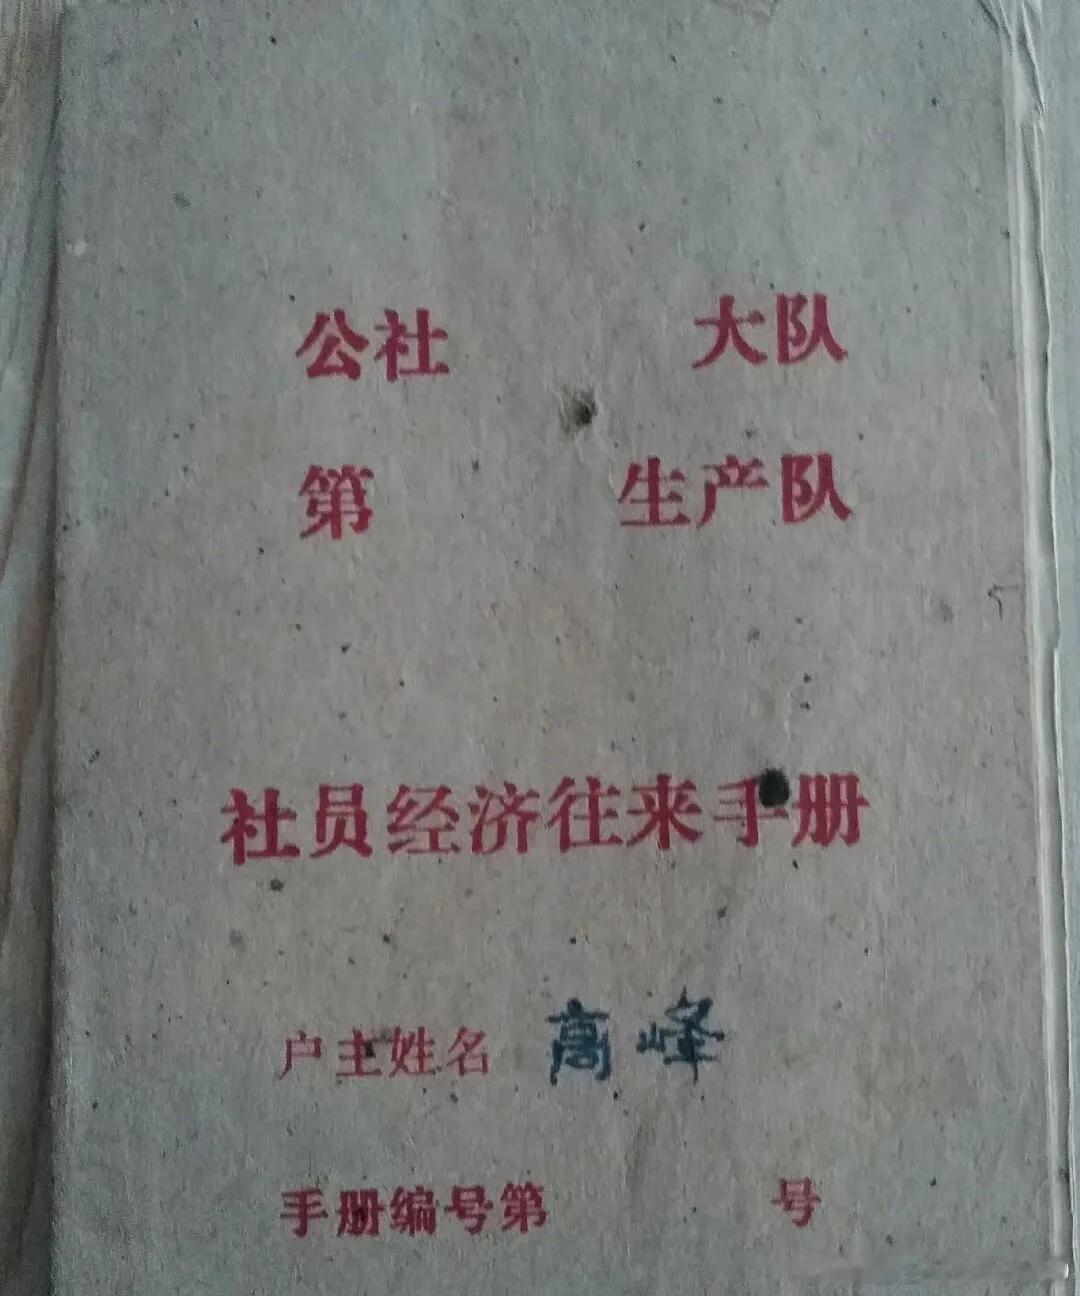 公社 大队
第 生产队
社员经济往来手册
户主姓名 高峰
手册编号第 号